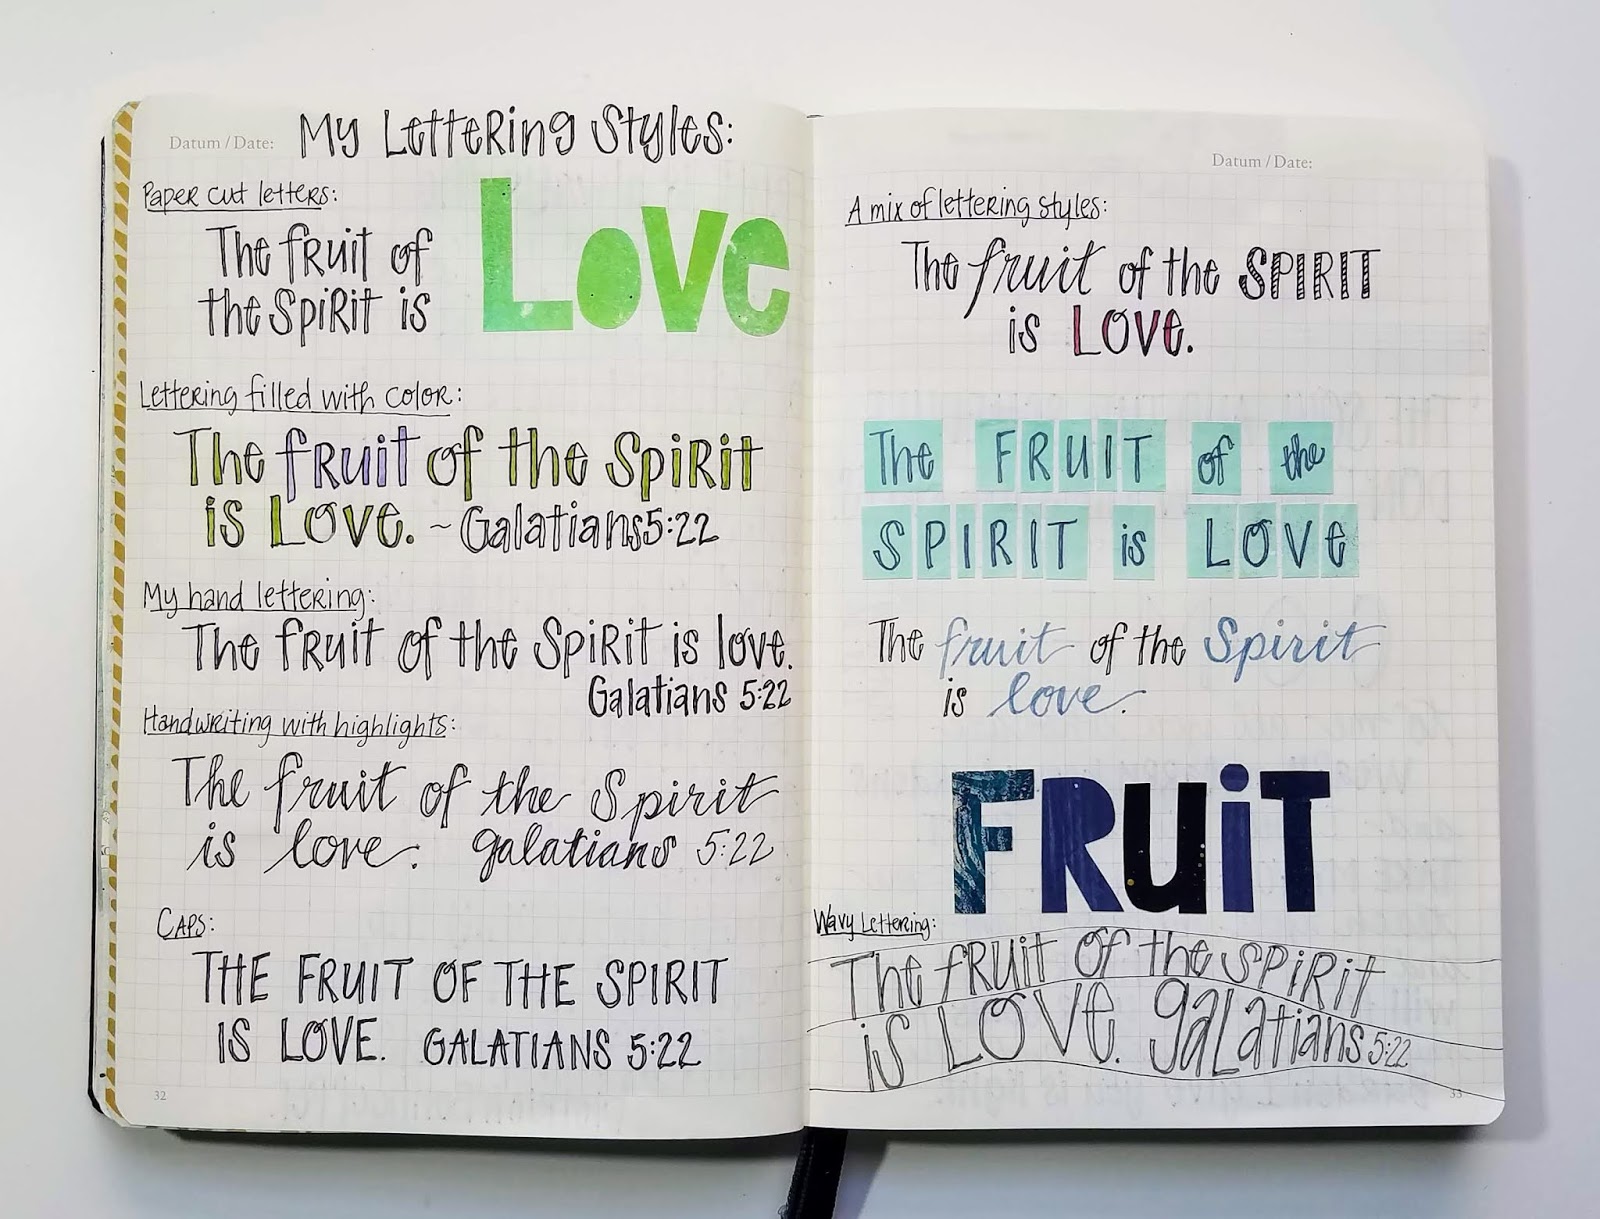 Datum / Date:
My Lettering Styles:
Paper cut letters:
The fruit of
the Spirit is
Love
Lettering filled with color:
The fruit of the Spirit
is Love. ~ Galatians 5:22
My hand lettering:
The fruit of the Spirit is love.
Galatians 5:22
Handwriting with highlights:
The fruit of the Spirit
is love. galatians 5:22
CAPS:
THE FRUIT OF THE SPIRIT
IS LOVE. GALATIANS 5:22
32
Datum / Date:
A mix of lettering styles:
The fruit of the SPIRIT
is LOVE.
The FRUIT of the
SPIRIT is LOVE
The fruit of the Spirit
is love.
FRUiT
Wavy Lettering:
The fruit of the Spirit
is LOVE. galatians 5:22
33